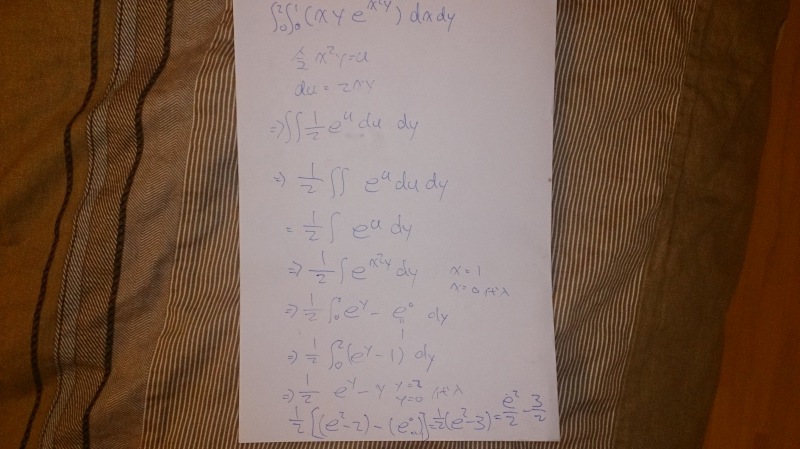 ∫₀²∫₀¹ (xy e^{x²y}) dx dy
x²y = u
du = 2xy
⇒ ∫∫ 1/2 e^u du dy
⇒ 1/2 ∫∫ e^u du dy
= 1/2 ∫ e^u dy
⇒ 1/2 ∫ e^{x²y} dy x=1
x=0
⇒ 1/2 ∫₀² e^y - e^0 dy
"
1
⇒ 1/2 ∫₀² (e^y - 1) dy
⇒ 1/2 e^y - y y=2
y=0
1/2 [(e² - 2) - (e^0)] = 1/2 (e² - 3) = e²/2 - 3/2